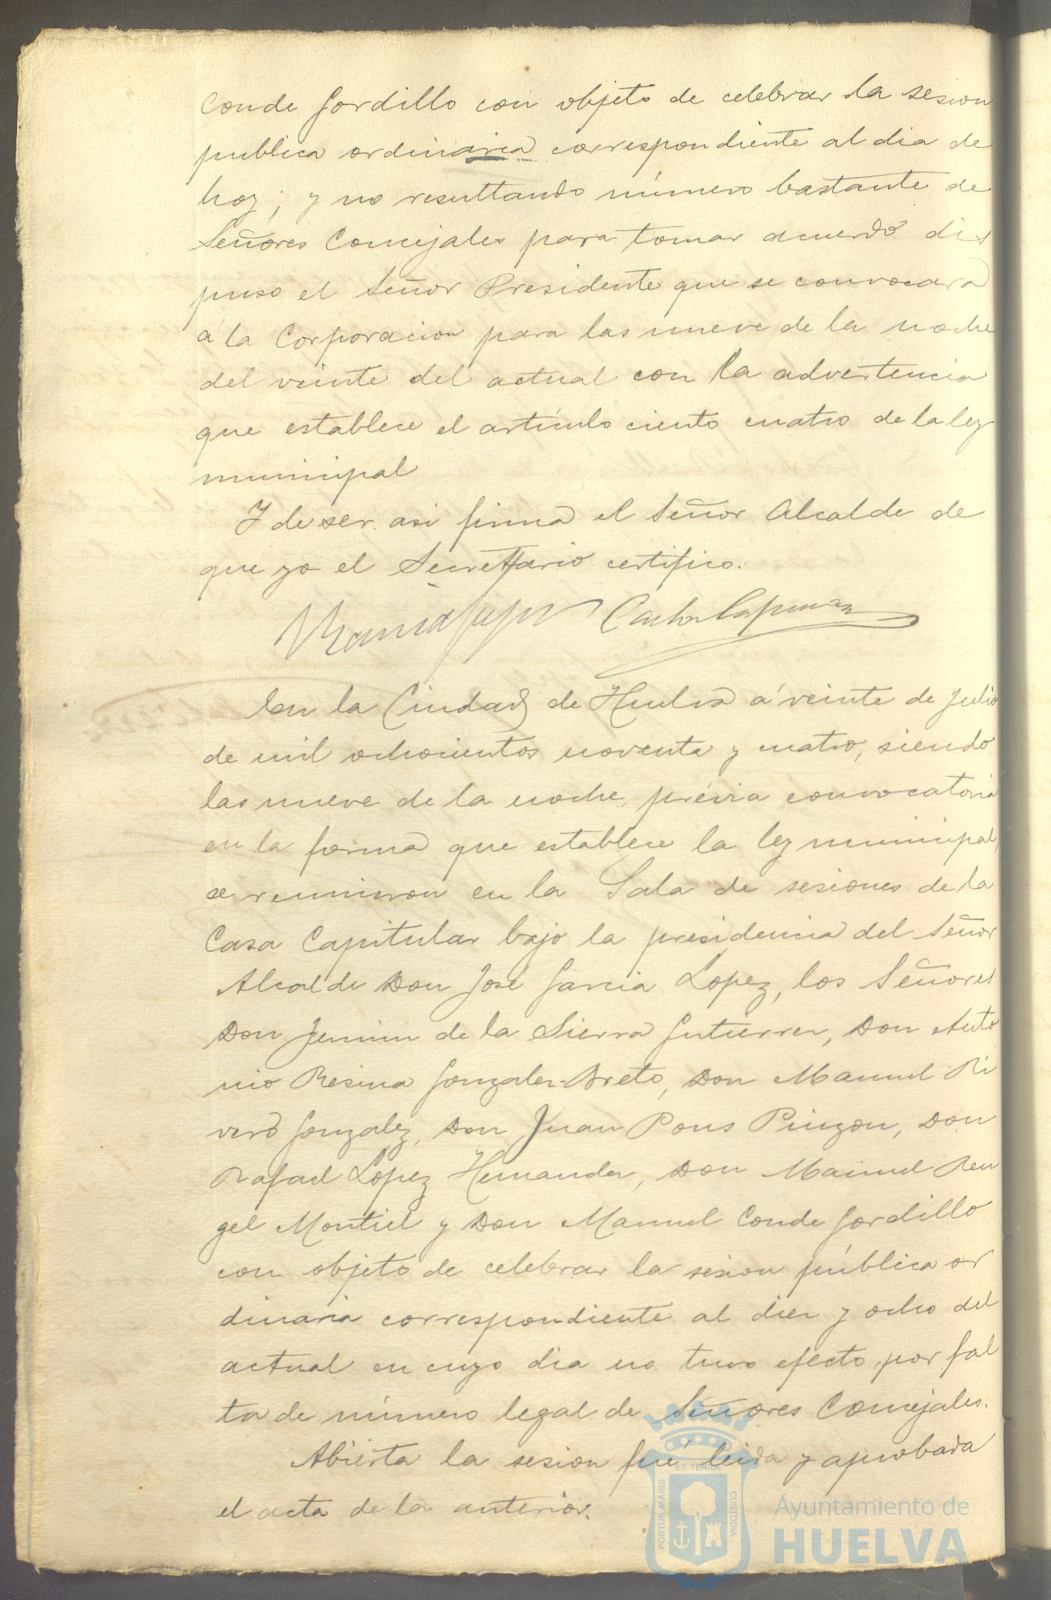 Conde Gordillo con objeto de celebrar la sesion
publica ordinaria correspondiente al dia de
hoy; y no resultando número bastante de
Señores Concejales para tomar acuerdo dis
puso el Señor Presidente que se convocara
á la Corporacion para las nueve de la noche
del veinte del actual con la advertencia
que establece el artículo ciento cuatro de la ley
municipal
Y de ser asi firma el Señor Alcalde de
que yo el Secretario certifico.
En la Ciudad de Huelva á veinte de Julio
de mil ochocientos noventa y cuatro, siendo
las nueve de la noche, prévia convocatoria
en la forma que establece la ley municipal,
se reunieron en la Sala de sesiones de la
Casa Capitular bajo la presidencia del Señor
Alcalde Don José Garcia Lopez, los Señores
Don de la Sierra Gutierrez, Don Anto
nio Resina Gonzalez, Don Manuel Ri
vero Gonzalez, Don Juan Pons Pinzon, Don
Rafael Lopez Hernandez, Don Manuel Ren
gel Montiel y Don Manuel Conde Gordillo
con objeto de celebrar la sesion pública or
dinaria correspondiente al diez y ocho del
actual en cuyo dia no tuvo efecto por fal
ta de número legal de Señores Concejales.
Abierta la sesion fué leida y aprobada
el acta de la anterior.
PORTUS MARIS ET TERRAE CUSTODIA
Ayuntamiento de
HUELVA